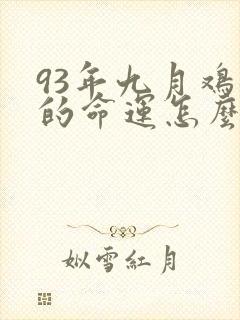 93年九月鸡
的命运怎麽
姒雪紅月